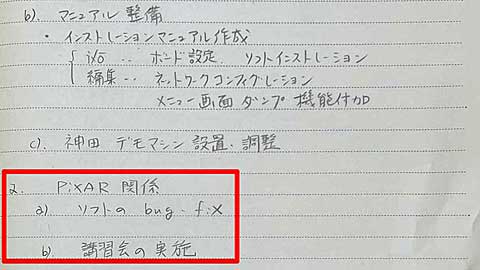 b). マニュアル整備
・インストレーションマニュアル作成
i/o ‥ ボード設定. ソフトインストレーション
編集‥ ネットワークコンフィグレーション
メニュー画面ダンプ機能付加
c). 神田 デモマシン設置・調整
2. PiXAR 関係
a) ソフトの bug-fix
b) 講習会の実施